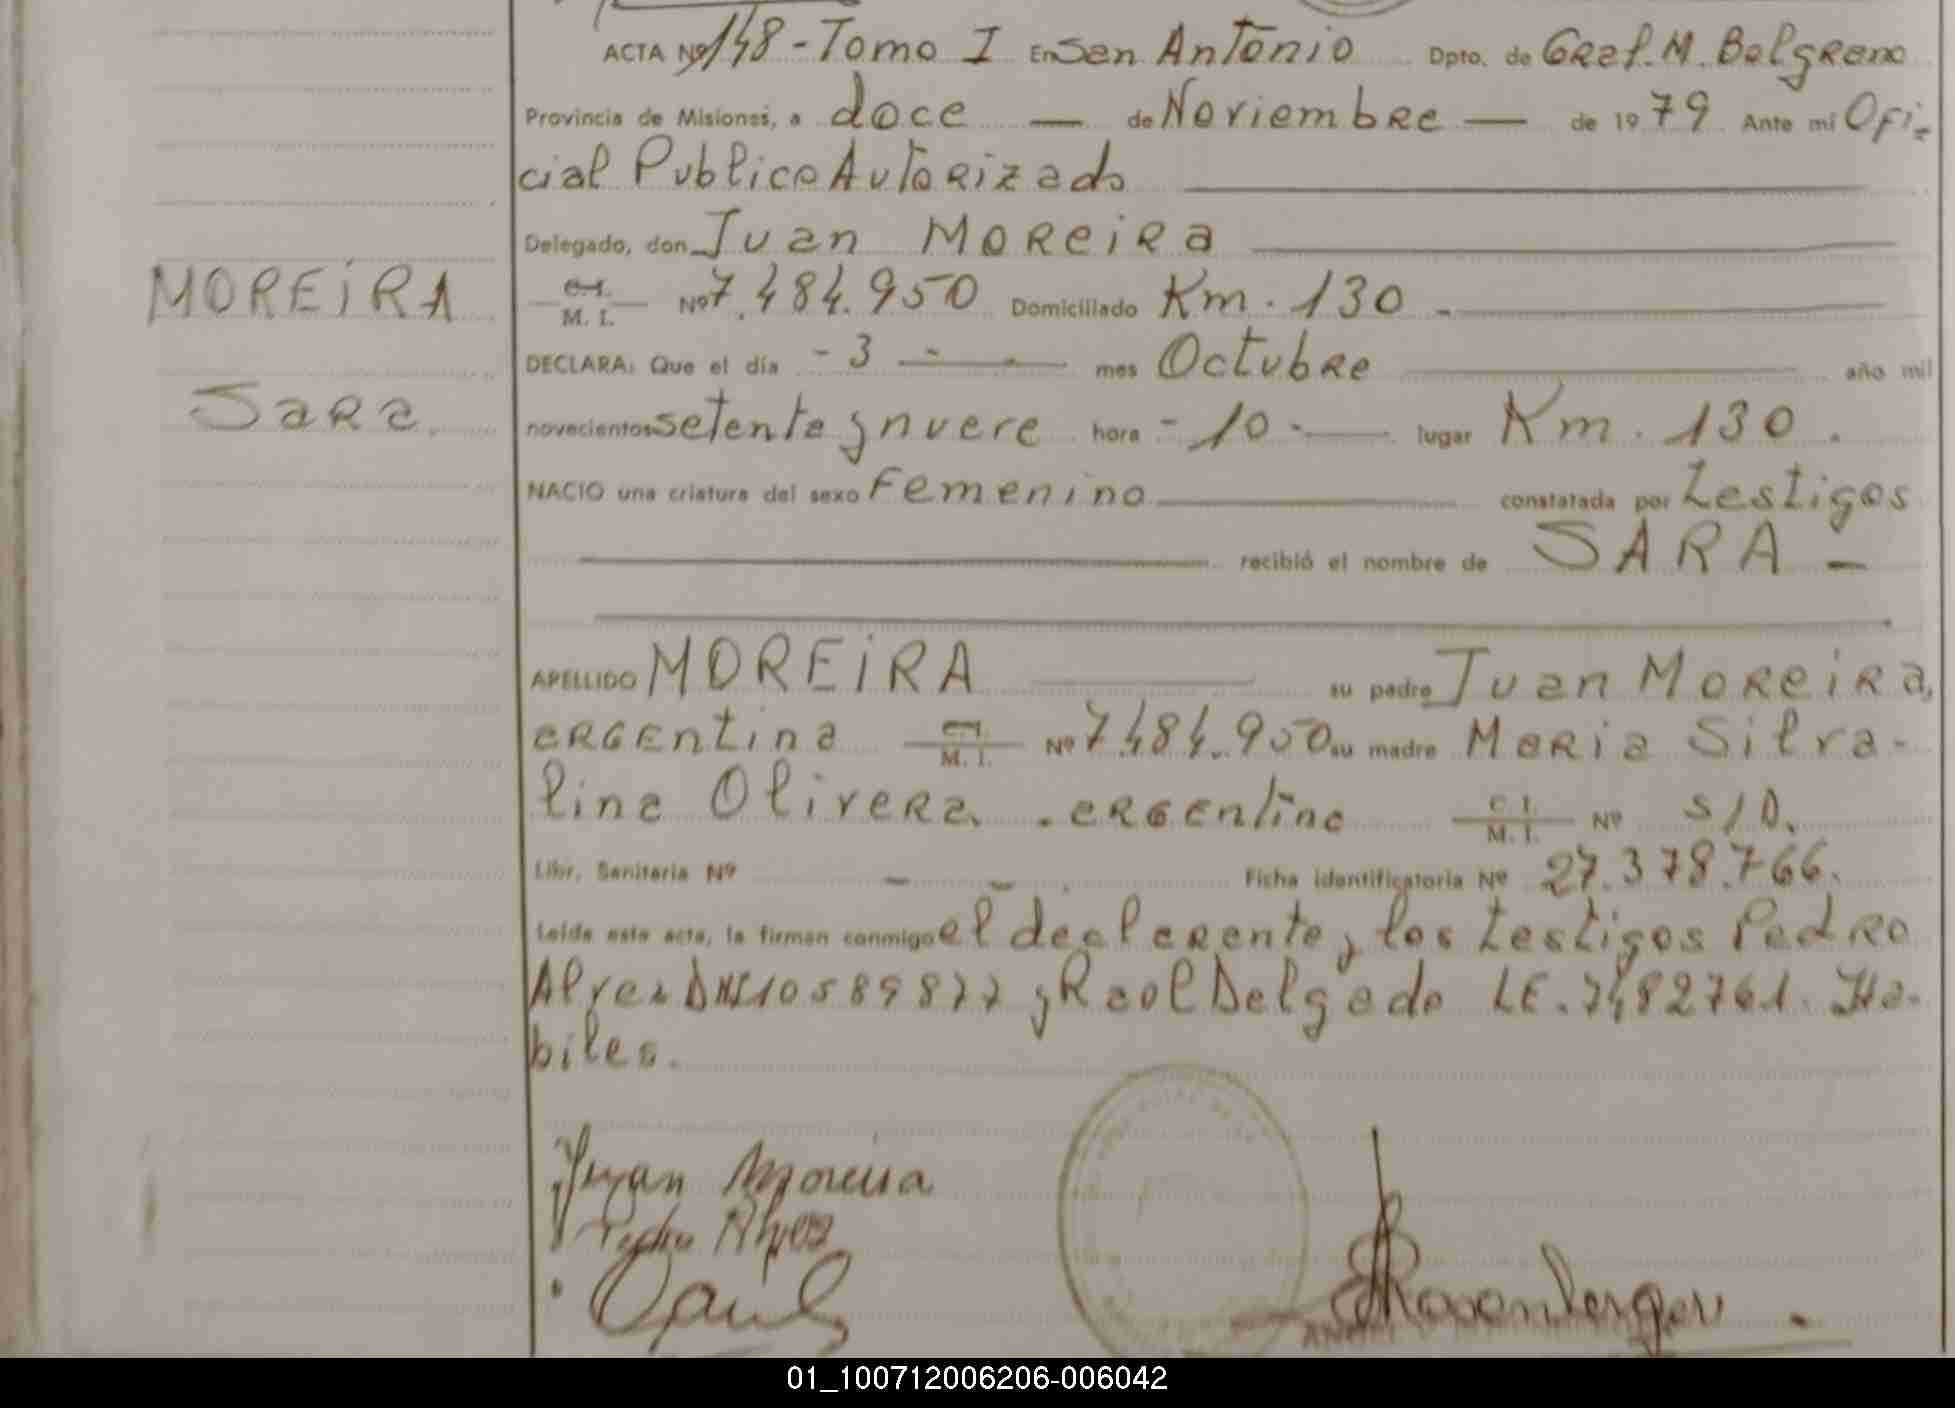 ACTA Nº 148 - Tomo I En San Antonio Dpto. de Gral. M. Belgrano
Provincia de Misiones, a doce — de Noviembre — de 1979 Ante mí Ofi-
cial Publico Autorizado
Delegado, don Juan Moreira
MOREIRA
C. I. / M. I. Nº 7.484.950 Domiciliado Km. 130 -
DECLARA: Que el día - 3 - mes Octubre año mil
Sara.
novecientos setenta y nueve hora - 10 - lugar Km. 130.
NACIO una criatura del sexo Femenino constatada por Testigos
recibió el nombre de SARA —
APELLIDO MOREIRA su padre Juan Moreira,
argentina C. I. / M. I. Nº 7.484.950 su madre Maria Silva-
lina Olivera. argentina C. I. / M. I. Nº S/D.
Libr. Sanitaria Nº - - Ficha identificatoria Nº 27.378.766.
Leída esta acta, la firman conmigo el declarante y los testigos Pedro
Alvez DNI 10589877 y Raol Delgado LE. 7482761. Ha-
biles.
Juan Moreira
Pedro Alvez
Rosenberger
01_100712006206-006042